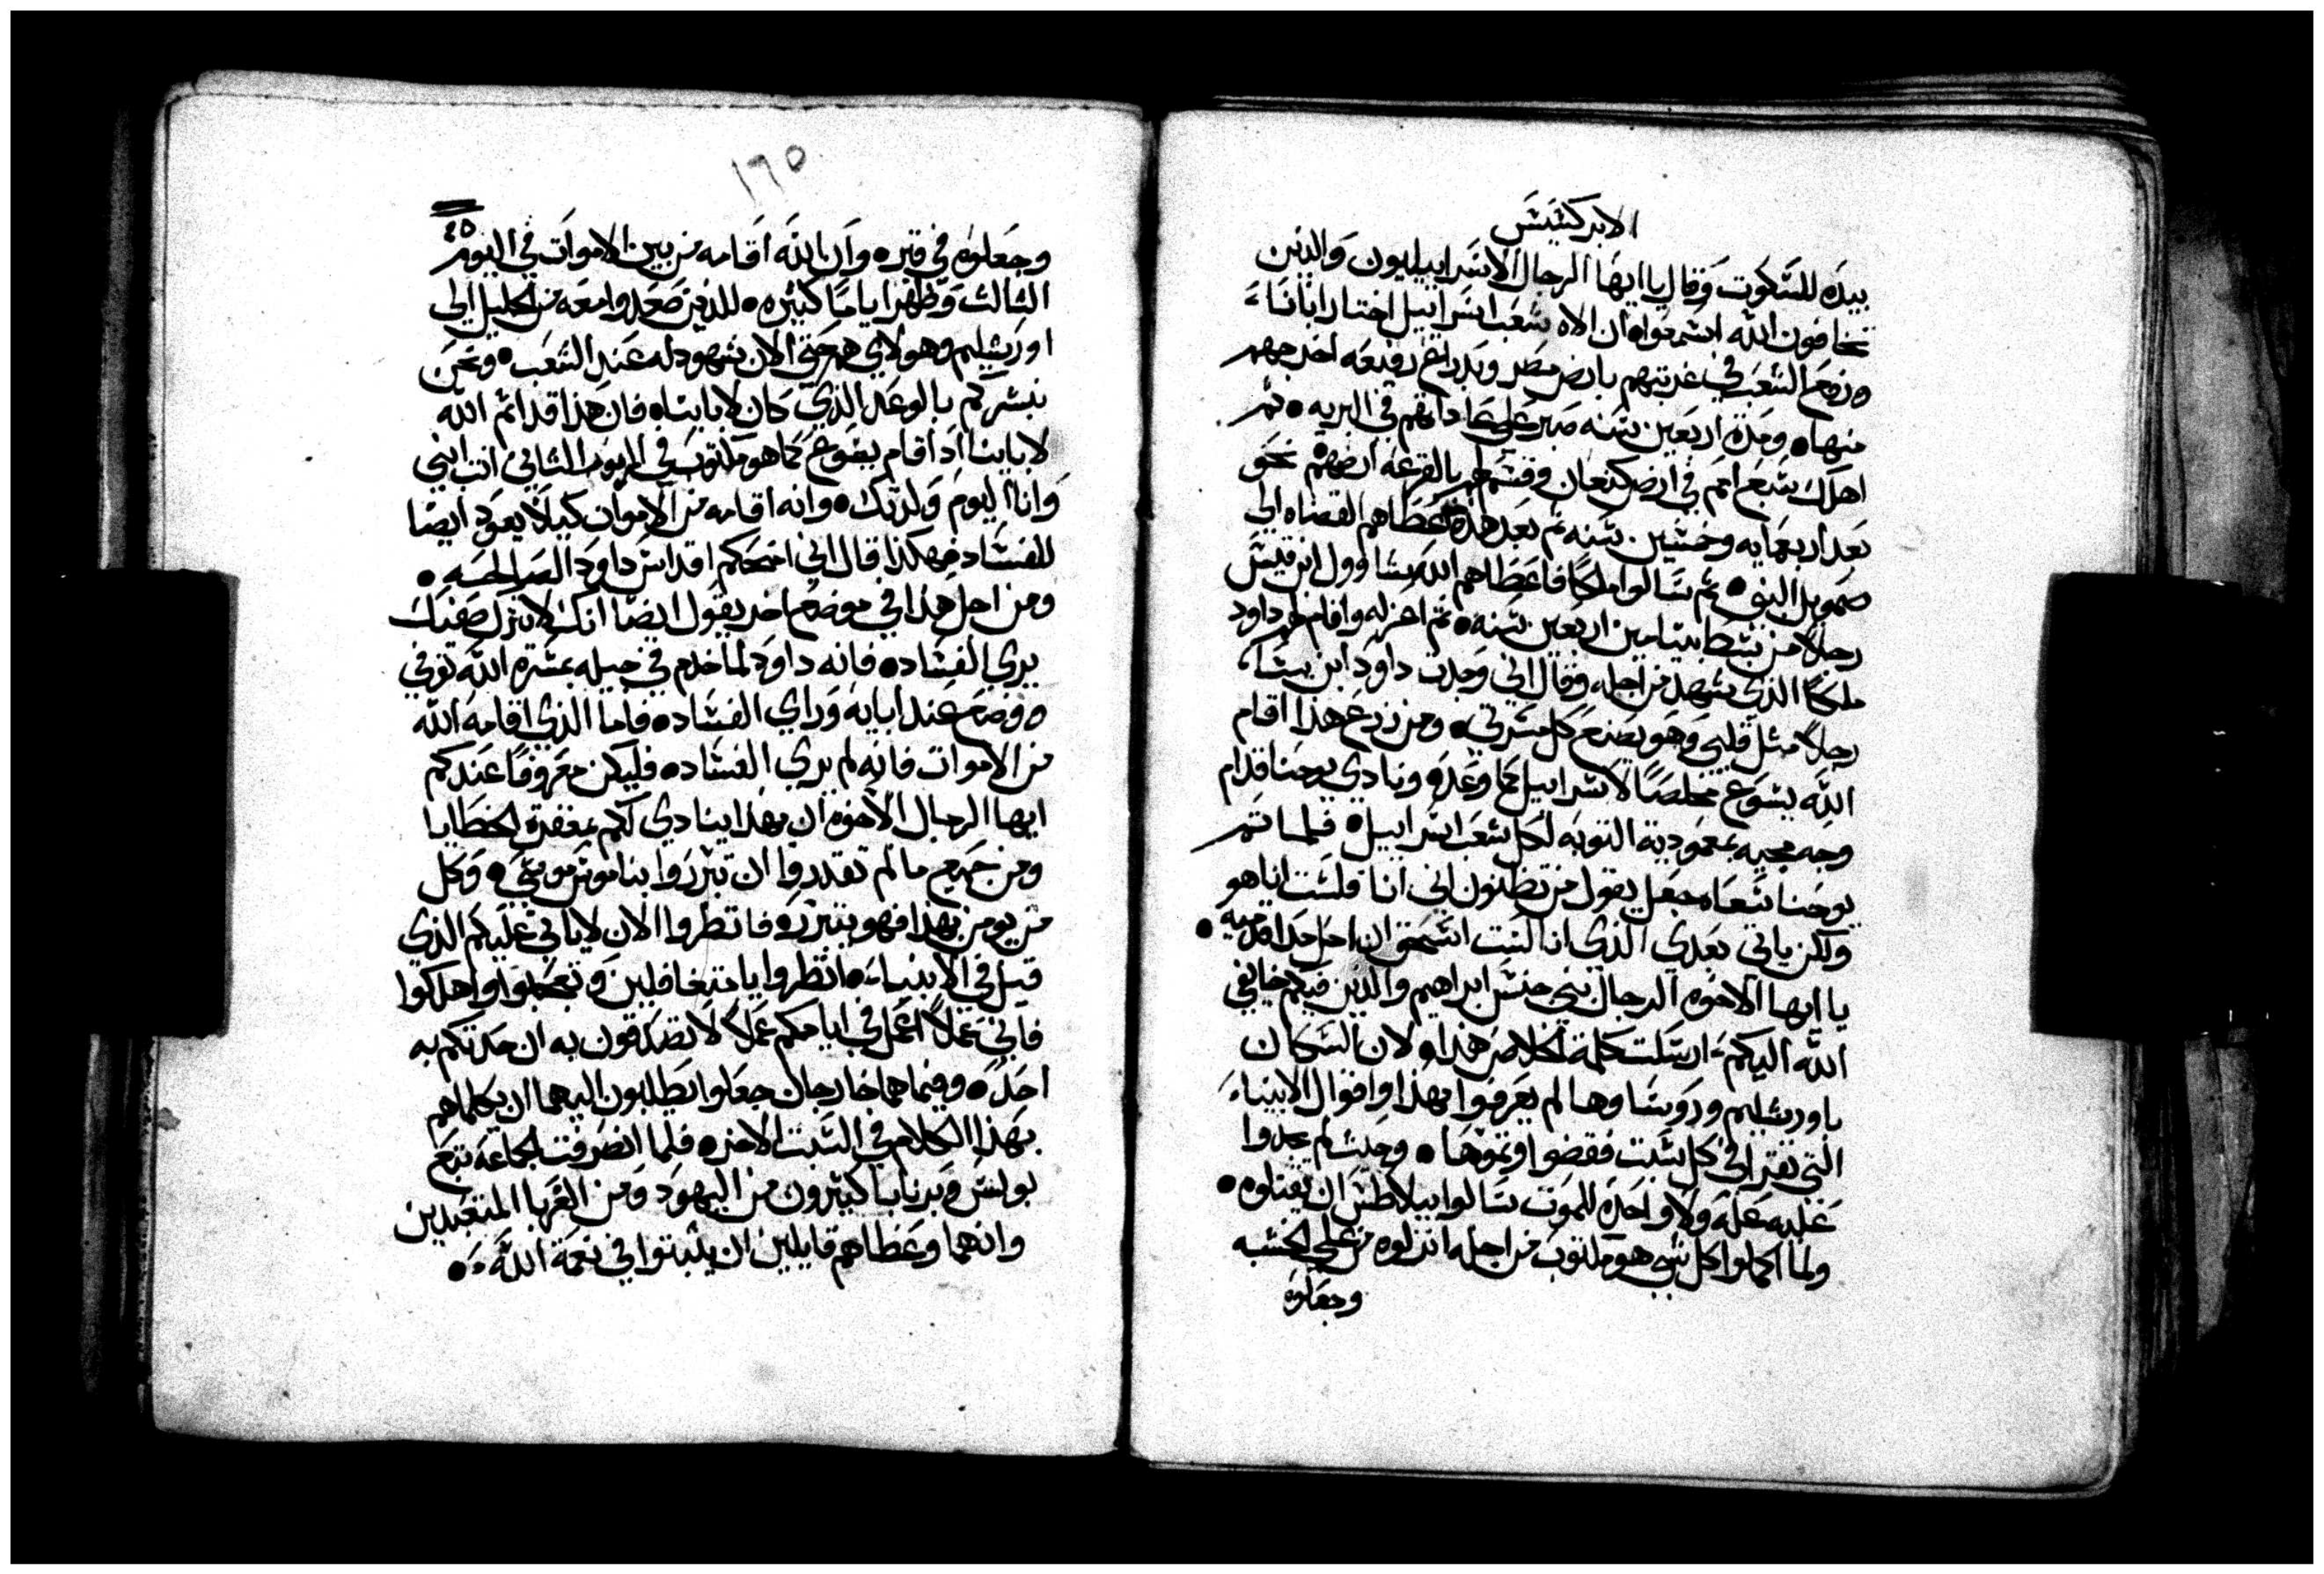 الابركسيس
بيده للسكوت وقال يا ايها الرجال الاسراييليون والذين
تخافون الله اسمعوا ان الاه شعب اسراييل اختار ابانا
ورفع الشعب في غربتهم بارض مصر وبدراع رفيعه اخرجهم
منها ومدة اربعين سنه صبر علي عاداتهم في البريه ثم
اهلك سبع امم في ارض كنعان وقسم لهم بالقرعه ارضهم نحو
بعد اربعمايه وخمسين سنه ثم بعد هذه اعطاهم القضاه الي
صمويل النبي ثم سالوا ملكا فاعطاهم الله شاوول ابن قيس
رجلا من سبط بنيامين اربعين سنه ثم اعزله واقام لهم داود
ملكا الذي شهد من اجله وقال اني وجدت داود ابن يسا
رجلا مثل قلبي وهو يصنع كل مسرتي ومن زرع هذا اقام
الله يسوع مخلصا لاسراييل كما وعده ونادي يوحنا قدام
وجه مجيه بمعمودية التوبه لكل شعب اسراييل فلما تم
يوحنا سعاه جعل يقول من تظنون اني انا فلست انا هو
ولكن ياتي بعدي الذي انا لست استحق ان احل حدا قدميه
يا ايها الاخوه الرجال بني جنس ابراهيم والذين فيكم خايفي
الله اليكم ارسلت كلمة الخلاص هذا ولان السكان
باورشليم وروسا وها لم يعرفوا بهذا واقوال الانبياء
التي تقرا في كل سبت فقضوا وتموها وحيث لم يجدوا
عليه عله ولا واحده للموت سالوا بيلاطس ان يقتلوه
ولما اكملوا كل شي هو مكتوب من اجله انزلوه من علي الخشبه
وجعلوه
١٦٥
٤٥
وجعلوه في قبره وان الله اقامه من بين الاموات في اليوم
الثالث وظهر اياما كثيره للذين صعدوا معه من الجليل الي
اورشليم وهولاي هم حتي الان شهود له عند الشعب ونحن
نبشركم بالوعد الذي كان لابايناه فان هذا قد اتم الله
لاباينا اد اقام يسوع كما هو مكتوب في المزمور الثاني انت ابني
وانا اليوم ولدتك وانه اقامه من الاموات كيلا يعود ايضا
للفساد فهكذا قال اني امنحكم اقداس داود الصالحه
ومن اجل هذا في موضع اخر يقول ايضا انك لا تترك صفيك
يري الفساد فانه داود لما خدم في جيله بمشرة الله توفي
ووضع عند ابايه وراي الفساد فاما الذي اقامه الله
من الاموات فانه لم يري الفساد فليكن معروفا عندكم
ايها الرجال الاخوه ان بهذا ينادي لكم بمغفرة الخطايا
ومن جميع ما لم تقدروا ان تبرروا بناموس موسي وكل
من يومن بهذا فهو يتبرر فانظروا الان لا ياتي عليكم الذي
قيل في الانبياء انظروا يا متغافلين وتعجبوا واهلكوا
فاني عملا اعمل في ايامكم عملا لا تصدقون به ان حدثكم به
احد وفيما هما خارجان جعلوا يطلبون اليهما ان يكلماهم
بهذا الكلام في السبت الاخر فلما انصرفت الجماعه تبع
بولس وبرنابا كثيرون من اليهود ومن الغربا المتعبدين
وانهما وعظاهم قايلين ان يثبتوا في نعمة الله